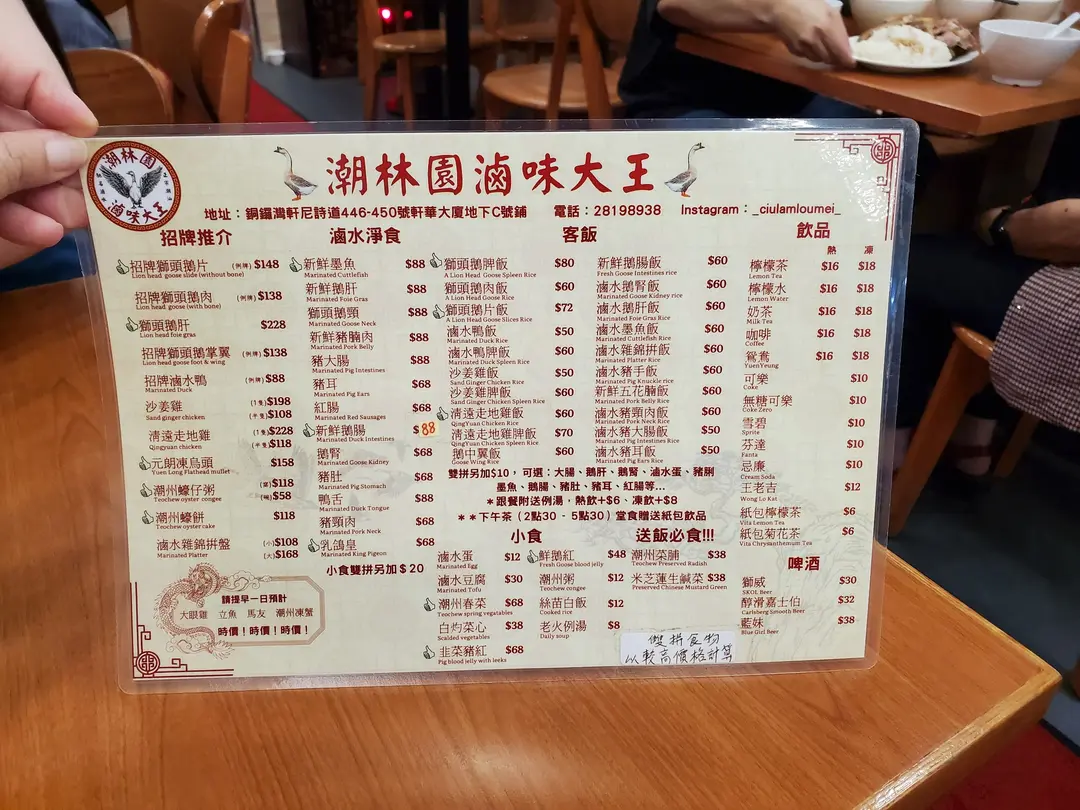 潮林園
滷味大王
潮林園滷味大王
地址：銅鑼灣軒尼詩道446-450號軒華大廈地下C號鋪 電話：28198938 Instagram：_ciulamloumei_
招牌推介
招牌獅頭鵝片 (例牌) $148
Lion head goose slide (without bone)
招牌獅頭鵝肉 (例牌) $138
Lion head goose (with bone)
獅頭鵝肝 $228
Lion head foie gras
招牌獅頭鵝掌翼 (例牌) $138
Lion head goose foot & wing
招牌滷水鴨 (例牌) $88
Marinated Duck
沙姜雞 (1隻) $198
Sand ginger chicken (半隻) $108
清遠走地雞 (1隻) $228
Qingyuan chicken (半隻) $118
元朗凍烏頭 $158
Yuen Long Flathead mullet
潮州蠔仔粥 (窩) $118
Teochew oyster congee (碗) $58
潮州蠔餅 $118
Teochew oyster cake
滷水雜錦拼盤 (小) $108
Marinated Platter (大) $168
請提早一日預計
大眼雞 立魚 馬友 潮州凍蟹
時價！時價！時價！
滷水淨食
新鮮墨魚 $88
Marinated Cuttlefish
新鮮鵝肝 $88
Marinated Foie Gras
獅頭鵝頸 $88
Marinated Goose Neck
新鮮豬腩肉 $88
Marinated Pork Belly
豬大腸 $88
Marinated Pig Intestines
豬耳 $68
Marinated Pig Ears
紅腸 $68
Marinated Red Sausages
新鮮鵝腸 $88
Marinated Duck Intestines
鵝腎 $68
Marinated Goose Kidney
豬肚 $68
Marinated Pig Stomach
鴨舌 $88
Marinated Duck Tongue
豬頸肉 $68
Marinated Pork Neck
乳鴿皇 $68
Marinated King Pigeon
小食雙拼另加＄20
客飯
獅頭鵝脾飯 $80
A Lion Head Goose Spleen Rice
獅頭鵝肉飯 $60
A Lion Head Goose Rice
獅頭鵝片飯 $72
A Lion Head Goose Slices Rice
滷水鴨飯 $50
Marinated Duck Rice
滷水鴨脾飯 $60
Marinated Duck Spleen Rice
沙姜雞飯 $50
Sand Ginger Chicken Rice
沙姜雞脾飯 $60
Sand Ginger Chicken Spleen Rice
清遠走地雞飯 $60
QingYuan Chicken Rice
清遠走地雞脾飯 $70
QingYuan Chicken Spleen Rice
鵝中翼飯 $60
Goose Wing Rice
新鮮鵝腸飯 $60
Fresh Goose Intestines rice
滷水鵝腎飯 $60
Marinated Goose Kidney rice
滷水鵝肝飯 $60
Marinated Foie Gras rice
滷水墨魚飯 $60
Marinated Cuttlefish Rice
滷水雜錦拼飯 $60
Marinated Platter Rice
滷水豬手飯 $60
Marinated Pig Knuckle rice
新鮮五花腩飯 $60
Marinated Pork Belly Rice
滷水豬頸肉飯 $60
Marinated Pork Neck Rice
滷水豬大腸飯 $50
Marinated Pig Intestines Rice
滷水豬耳飯 $50
Marinated Pig Ears Rice
雙拼另加$10，可選：大腸、鵝肝、鵝腎、滷水蛋、豬脷
墨魚、鵝腸、豬肚、豬耳、紅腸等...
＊跟餐附送例湯，熱飲+$6、凍飲+$8
＊＊下午茶（2點30 - 5點30）堂食贈送紙包飲品
小食
滷水蛋 $12
Marinated Egg
滷水豆腐 $30
Marinated Tofu
潮州春菜 $68
Teochew spring vegetables
白灼菜心 $38
Scalded vegetables
韭菜豬紅 $68
Pig blood jelly with leeks
鮮鵝紅 $48
Fresh Goose blood jelly
潮州粥 $12
Teochew congee
絲苗白飯 $12
Cooked rice
老火例湯 $8
Daily soup
送飯必食!!!
潮州菜脯 $38
Teochew Preserved Radish
米芝蓮生鹹菜 $38
Preserved Chinese Mustard Green
雙拼食物
以較高價格計算
飲品
熱 凍
檸檬茶 $16 $18
Lemon Tea
檸檬水 $16 $18
Lemon Water
奶茶 $16 $18
Milk Tea
咖啡 $16 $18
Coffee
鴛鴦 $16 $18
YuenYeung
可樂 $10
Coke
無糖可樂 $10
Coke Zero
雪碧 $10
Sprite
芬達 $10
Fanta
忌廉 $10
Cream Soda
王老吉 $12
Wong Lo Kat
紙包檸檬茶 $6
Vita Lemon Tea
紙包菊花茶 $6
Vita Chrysanthemum Tea
啤酒
獅威 $30
SKOL Beer
醇滑嘉士伯 $32
Carlsberg Smooth Beer
藍妹 $38
Blue Girl Beer